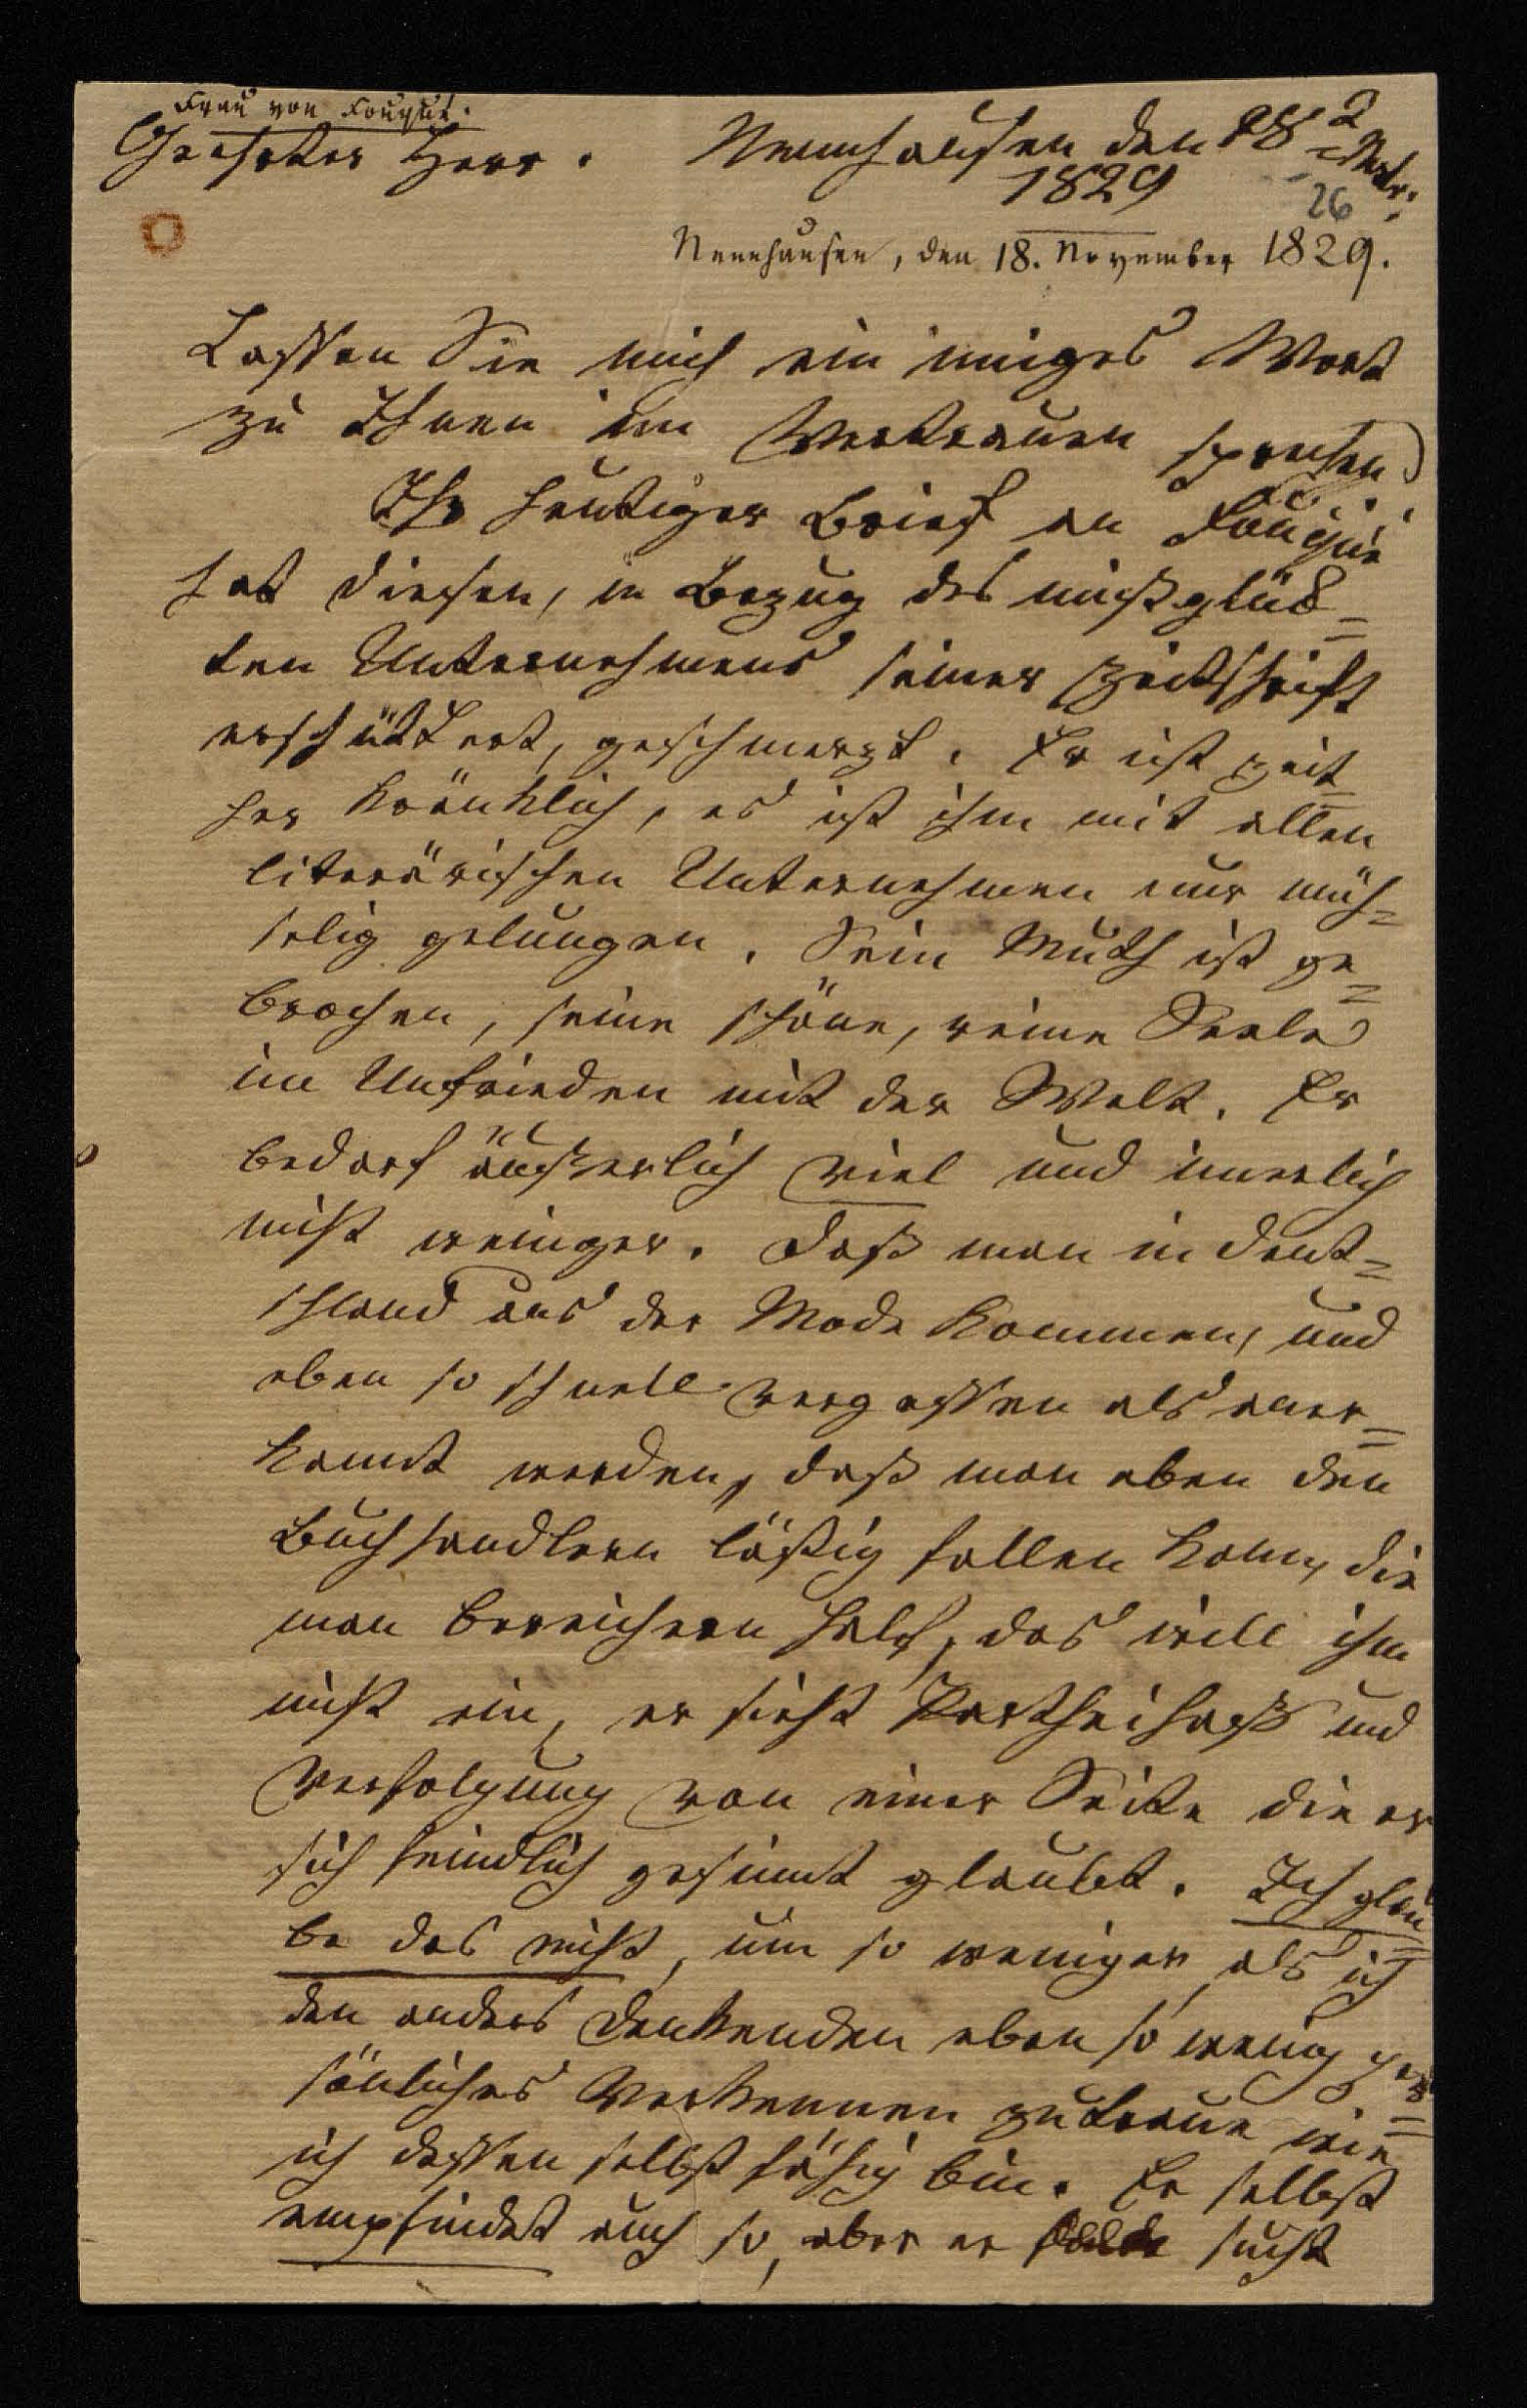 Frau von Fouqué.
Geehrter Herr. Nennhausen den 18 Novbr:
1829
26
Nennhausen, den 18. November 1829.
Lassen Sie mich ein inniges Wort
zu Ihnen im Vertrauen sprechen
Ihr heutiger Brief an Fouqué
hat diesen, in Bezug des mißglück=
ten Unternehmens seiner Zeitschrift
erschüttert, geschmerzt. Er ist zeit=
her kränklich, es ist ihm mit allen
literärischen Unternehmen nur müh=
selig gelungen. Sein Muth ist ge=
brochen, seine schöne, reine Seele
im Unfrieden mit der Welt. Er
bedarf äußerlich viel und innerlich
nicht weniger. Daß man in Deut=
schland aus der Mode kommen, und
eben so schnell vergessen als aner=
kannt werden, daß man eben den
Buchhandlern läßig fallen kann, die
man bereichern half, das will ihm
nicht ein, er sieht Partheihaß und
Verfolgung von einer Seite die er
sich feindlich gesinnt glaubt. Ich glau=
be das nicht, um so weniger, als ich
den anders Denkenden eben so wenig per=
sönliches Verkennen zutraue wie
ich dessen selbst fähig bin. Er selbst
empfindet auch so, aber er sucht